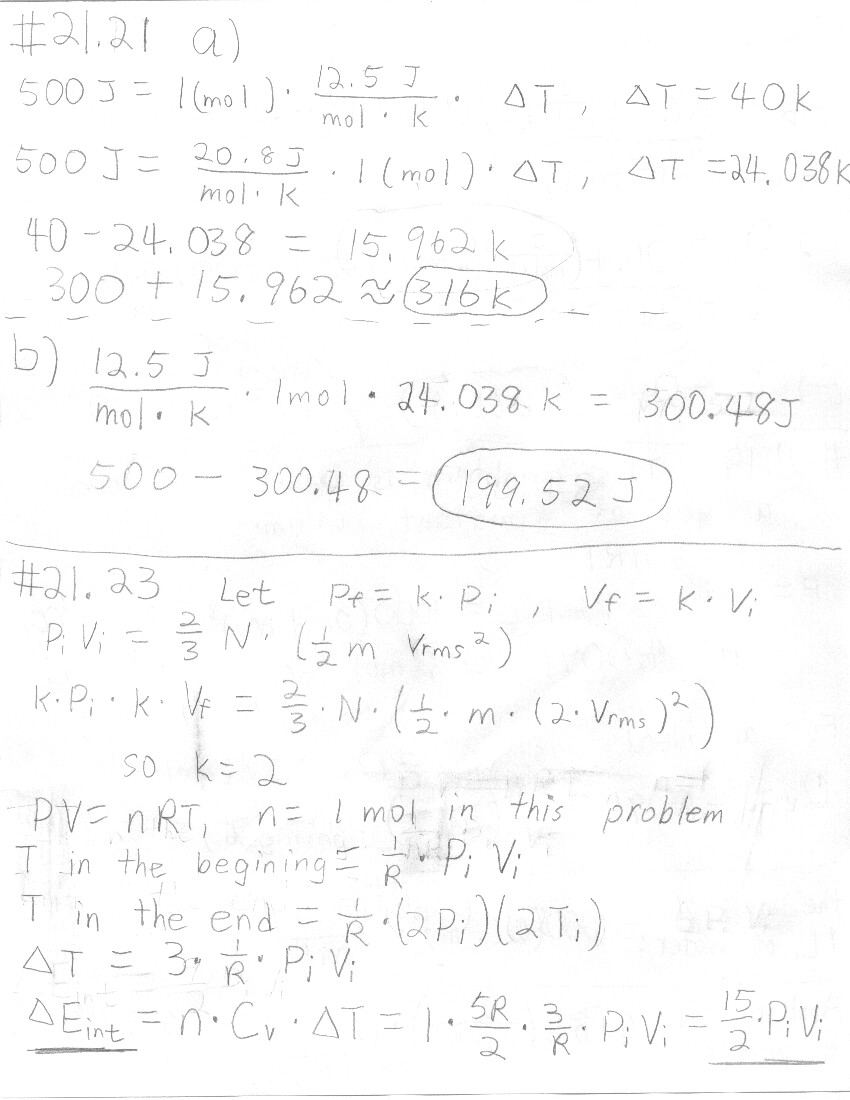 #21.21 a)
500 J = 1(mol) · 12.5 J / mol · k · ΔT, ΔT = 40k
500 J = 20.8 J / mol · k · 1(mol) · ΔT, ΔT = 24.038k
40 - 24.038 = 15.962 k
300 + 15.962 ≈ 316 k
b) 12.5 J / mol · k · 1mol · 24.038 k = 300.48J
500 - 300.48 = 199.52 J
#21.23 Let Pf = k · Pi , Vf = k · Vi
Pi Vi = 2/3 N · (1/2 m Vrms²)
k · Pi · k · Vf = 2/3 · N · (1/2 · m · (2 · Vrms)²)
so k = 2
PV = nRT, n = 1 mol in this problem
T in the begining = 1/R · Pi Vi
T in the end = 1/R · (2Pi)(2Ti)
ΔT = 3 · 1/R · Pi Vi
ΔEint = n · Cv · ΔT = 1 · 5R/2 · 3/R · Pi Vi = 15/2 · Pi Vi